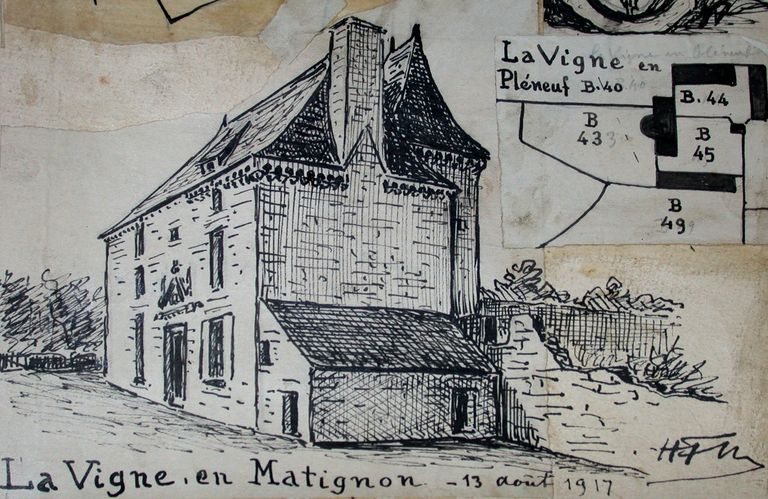 La Vigne en
Pléneuf B.40
B. 44
B
433
B
45
B
499
La Vigne. en Matignon - 13 août 1917